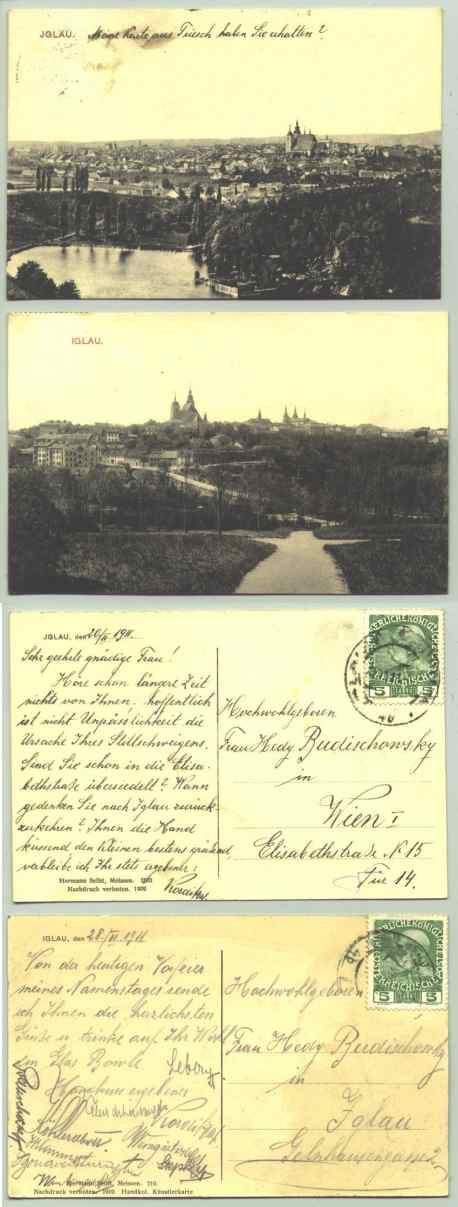 JGLAU. Meine Karte aus Triesch haben Sie erhalten?
IGLAU.
JGLAU, den 20/II. 1911.
Sehr geehrte gnädige Frau!
Höre schon längere Zeit
nichts von Ihnen, hoffentlich
ist nicht Unpässlichkeit die
Ursache Ihres Stillschweigens.
Sind Sie schon in die Elisa-
bethstraße übersiedelt? Wann
gedenken Sie nach Iglau zurück-
zukehren? Ihnen die Hand
küssend den Kleinen bestens grüßend
verbleibe ich Ihr stets ergebener
Hermann Seibt, Meissen.
Nachdruck verboten. 1909
Hochwohlgeboren
Frau Hedy Budischowsky
in
Wien I
Elisabethstraße N° 15
Tür 14.
5 5
IGLAU, den 28./VI. 1911
Von der heutigen Vorfeier
meines Namenstages sende
ich Ihnen die herzlichsten
Grüße u. trinke auf Ihr Wohl
ein Glas Bowle
Handkuss ergebener
Hermann Seibt, Meissen. 210.
Nachdruck verboten 1909. Handkol. Künstlerkarte
Hochwohlgeboren
Frau Hedy Budischowsky
in
Iglau
Gelnhausengasse 2
5 5